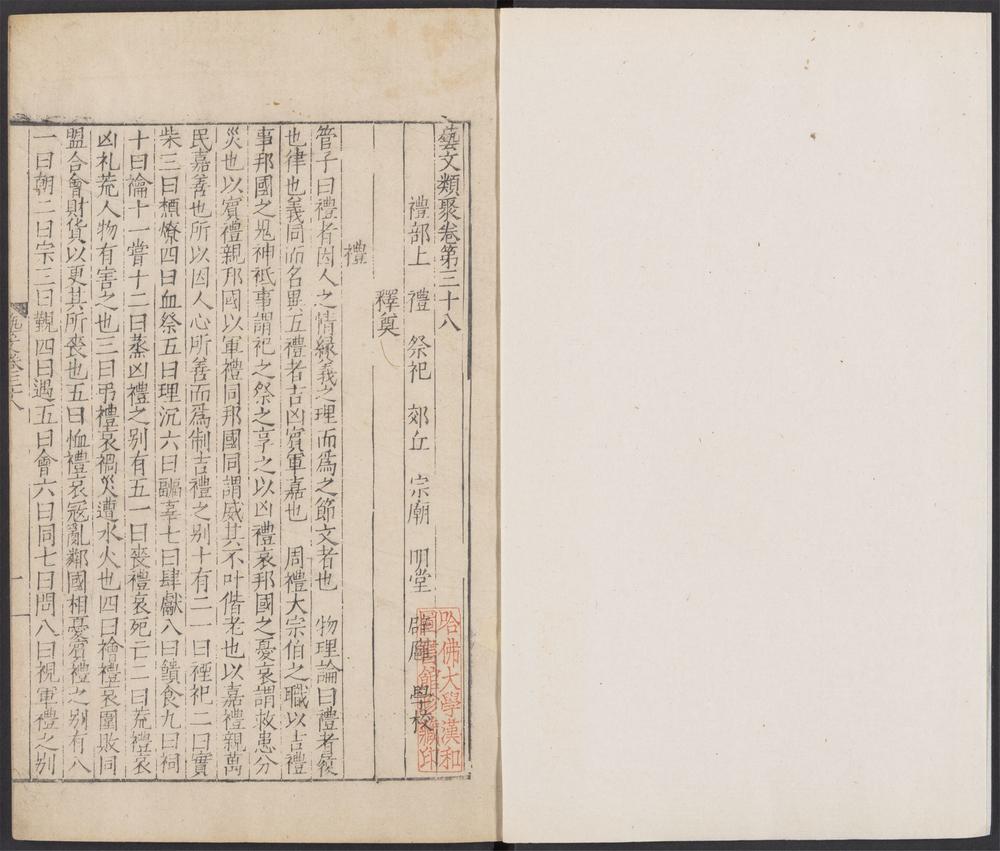 藝文類聚卷第三十八
禮部上 禮 祭祀 郊丘 宗廟 明堂 辟雍 學校
釋奠
禮
管子曰禮者因人之情緣義之理而爲之節文者也 物理論曰禮者履
也律也義同而名異五禮者吉凶賓軍嘉也 周禮大宗伯之職以吉禮
事邦國之鬼神祗事謂祀之祭之享之以凶禮哀邦國之憂哀謂救患分
災也以賓禮親邦國以軍禮同邦國同謂威其不叶偕老也以嘉禮親萬
民嘉善也所以因人心所善而爲制吉禮之别十有二一曰禋祀二曰實
柴三曰槱燎四曰血祭五曰理沉六曰疈辜七曰肆獻八曰饋食九曰祠
十曰禴十一嘗十二曰蒸凶禮之别有五一曰喪禮哀死亡二曰荒禮哀
凶礼荒人物有害之也三曰弔禮哀禍災遭水火也四曰禬禮哀圍敗同
盟合會財貨以更其所喪也五曰恤禮哀寇亂鄰國相憂賓禮之别有八
一曰朝二曰宗三曰覲四曰遇五曰會六曰同七曰問八曰視軍禮之别
哈佛大學漢和
圖書館珍藏印